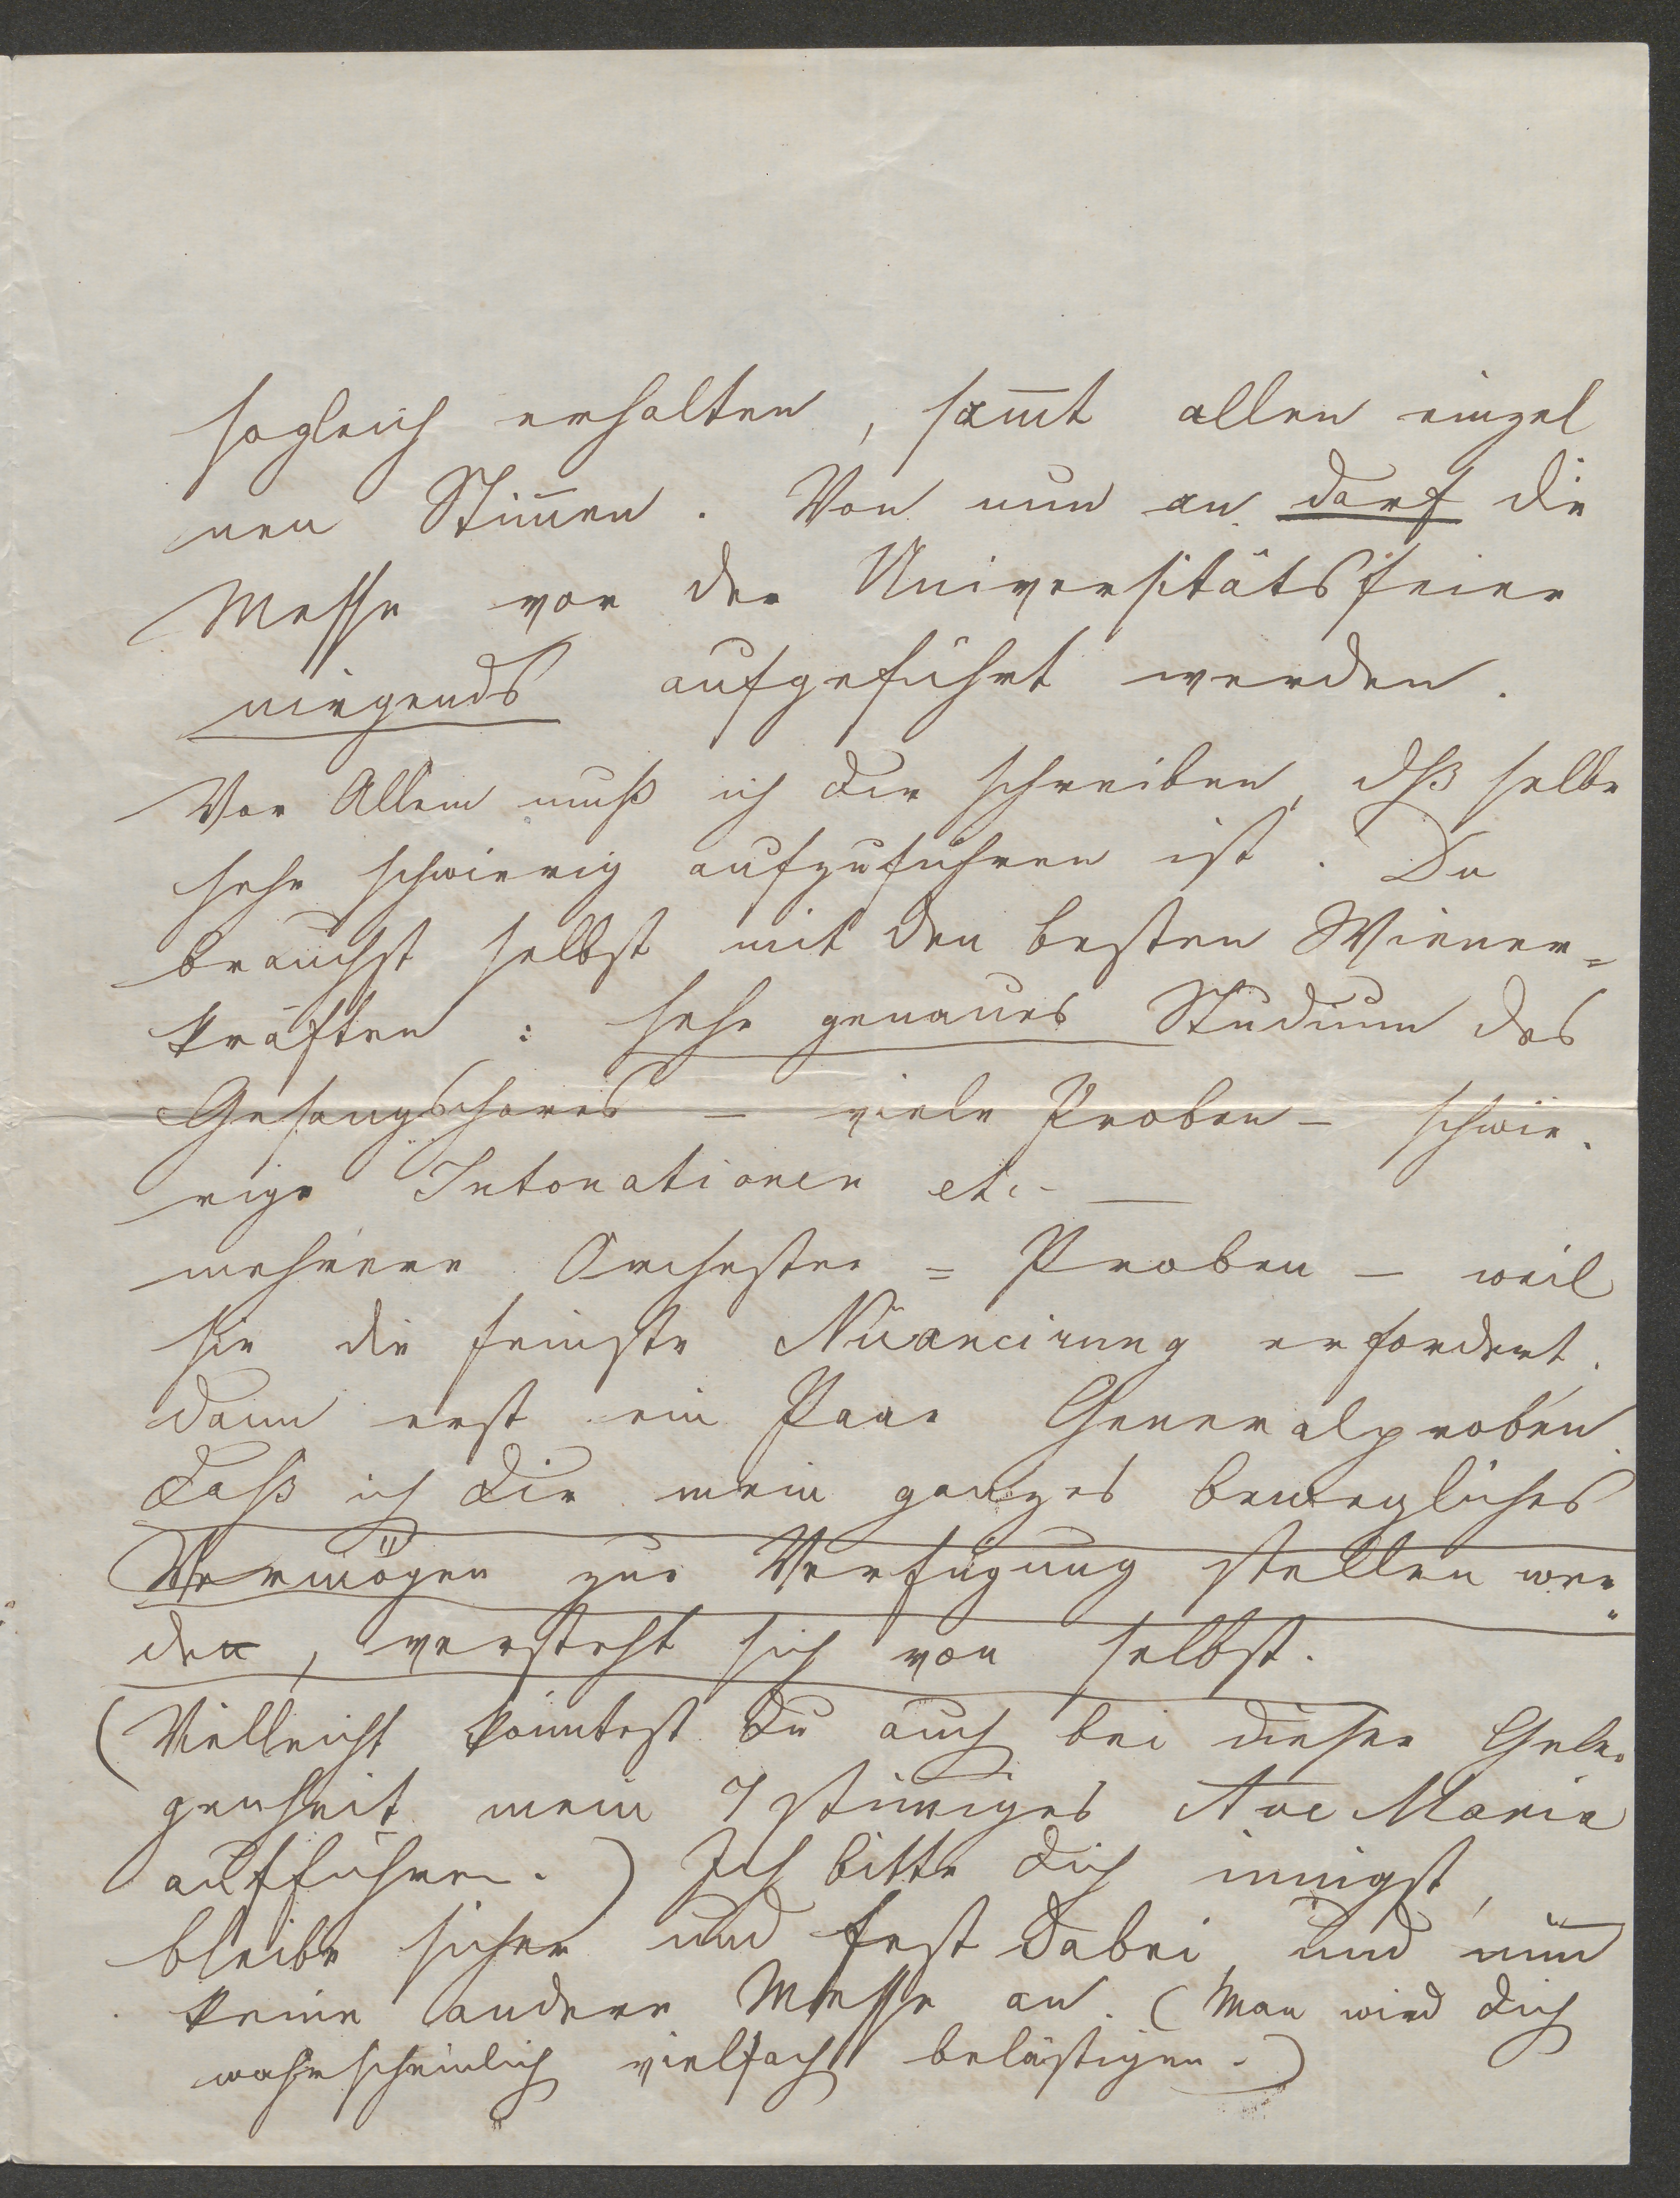 sogleich erhalten, sam̅t allen einzel
nen Stim̅en. Von nun an darf die
Messe vor der Universitätsfeier
nirgends aufgeführt werden.
Vor Allem muß ich Dir schreiben, dß selbe
sehr schwierig aufzuführen ist. Du
brauchst selbst mit den besten Wiener=
kräften: sehr genaues Studium des
Gesangschores – viele Proben – schwie-
rige Intonationen etc. —
mehrere Orchester = Proben – weil
sie die feinste Nüancirung erfordert.
dann erst ein Paar Generalproben.
Daß ich Dir mein ganzes bewegliches
Vermögen zur Verfügung stellen wer=
de, versteht sich von selbst.
(Vielleicht könntest Du auch bei dieser Gele-
genheit mein 7 stim̅iges Ave Maria
aufführen.) Ich bitte Dich innigst,
bleibe sicher und fest dabei, und nim̅
keine andere Messe an. (Man wird Dich
wahrscheinlich vielfach belästigen.)